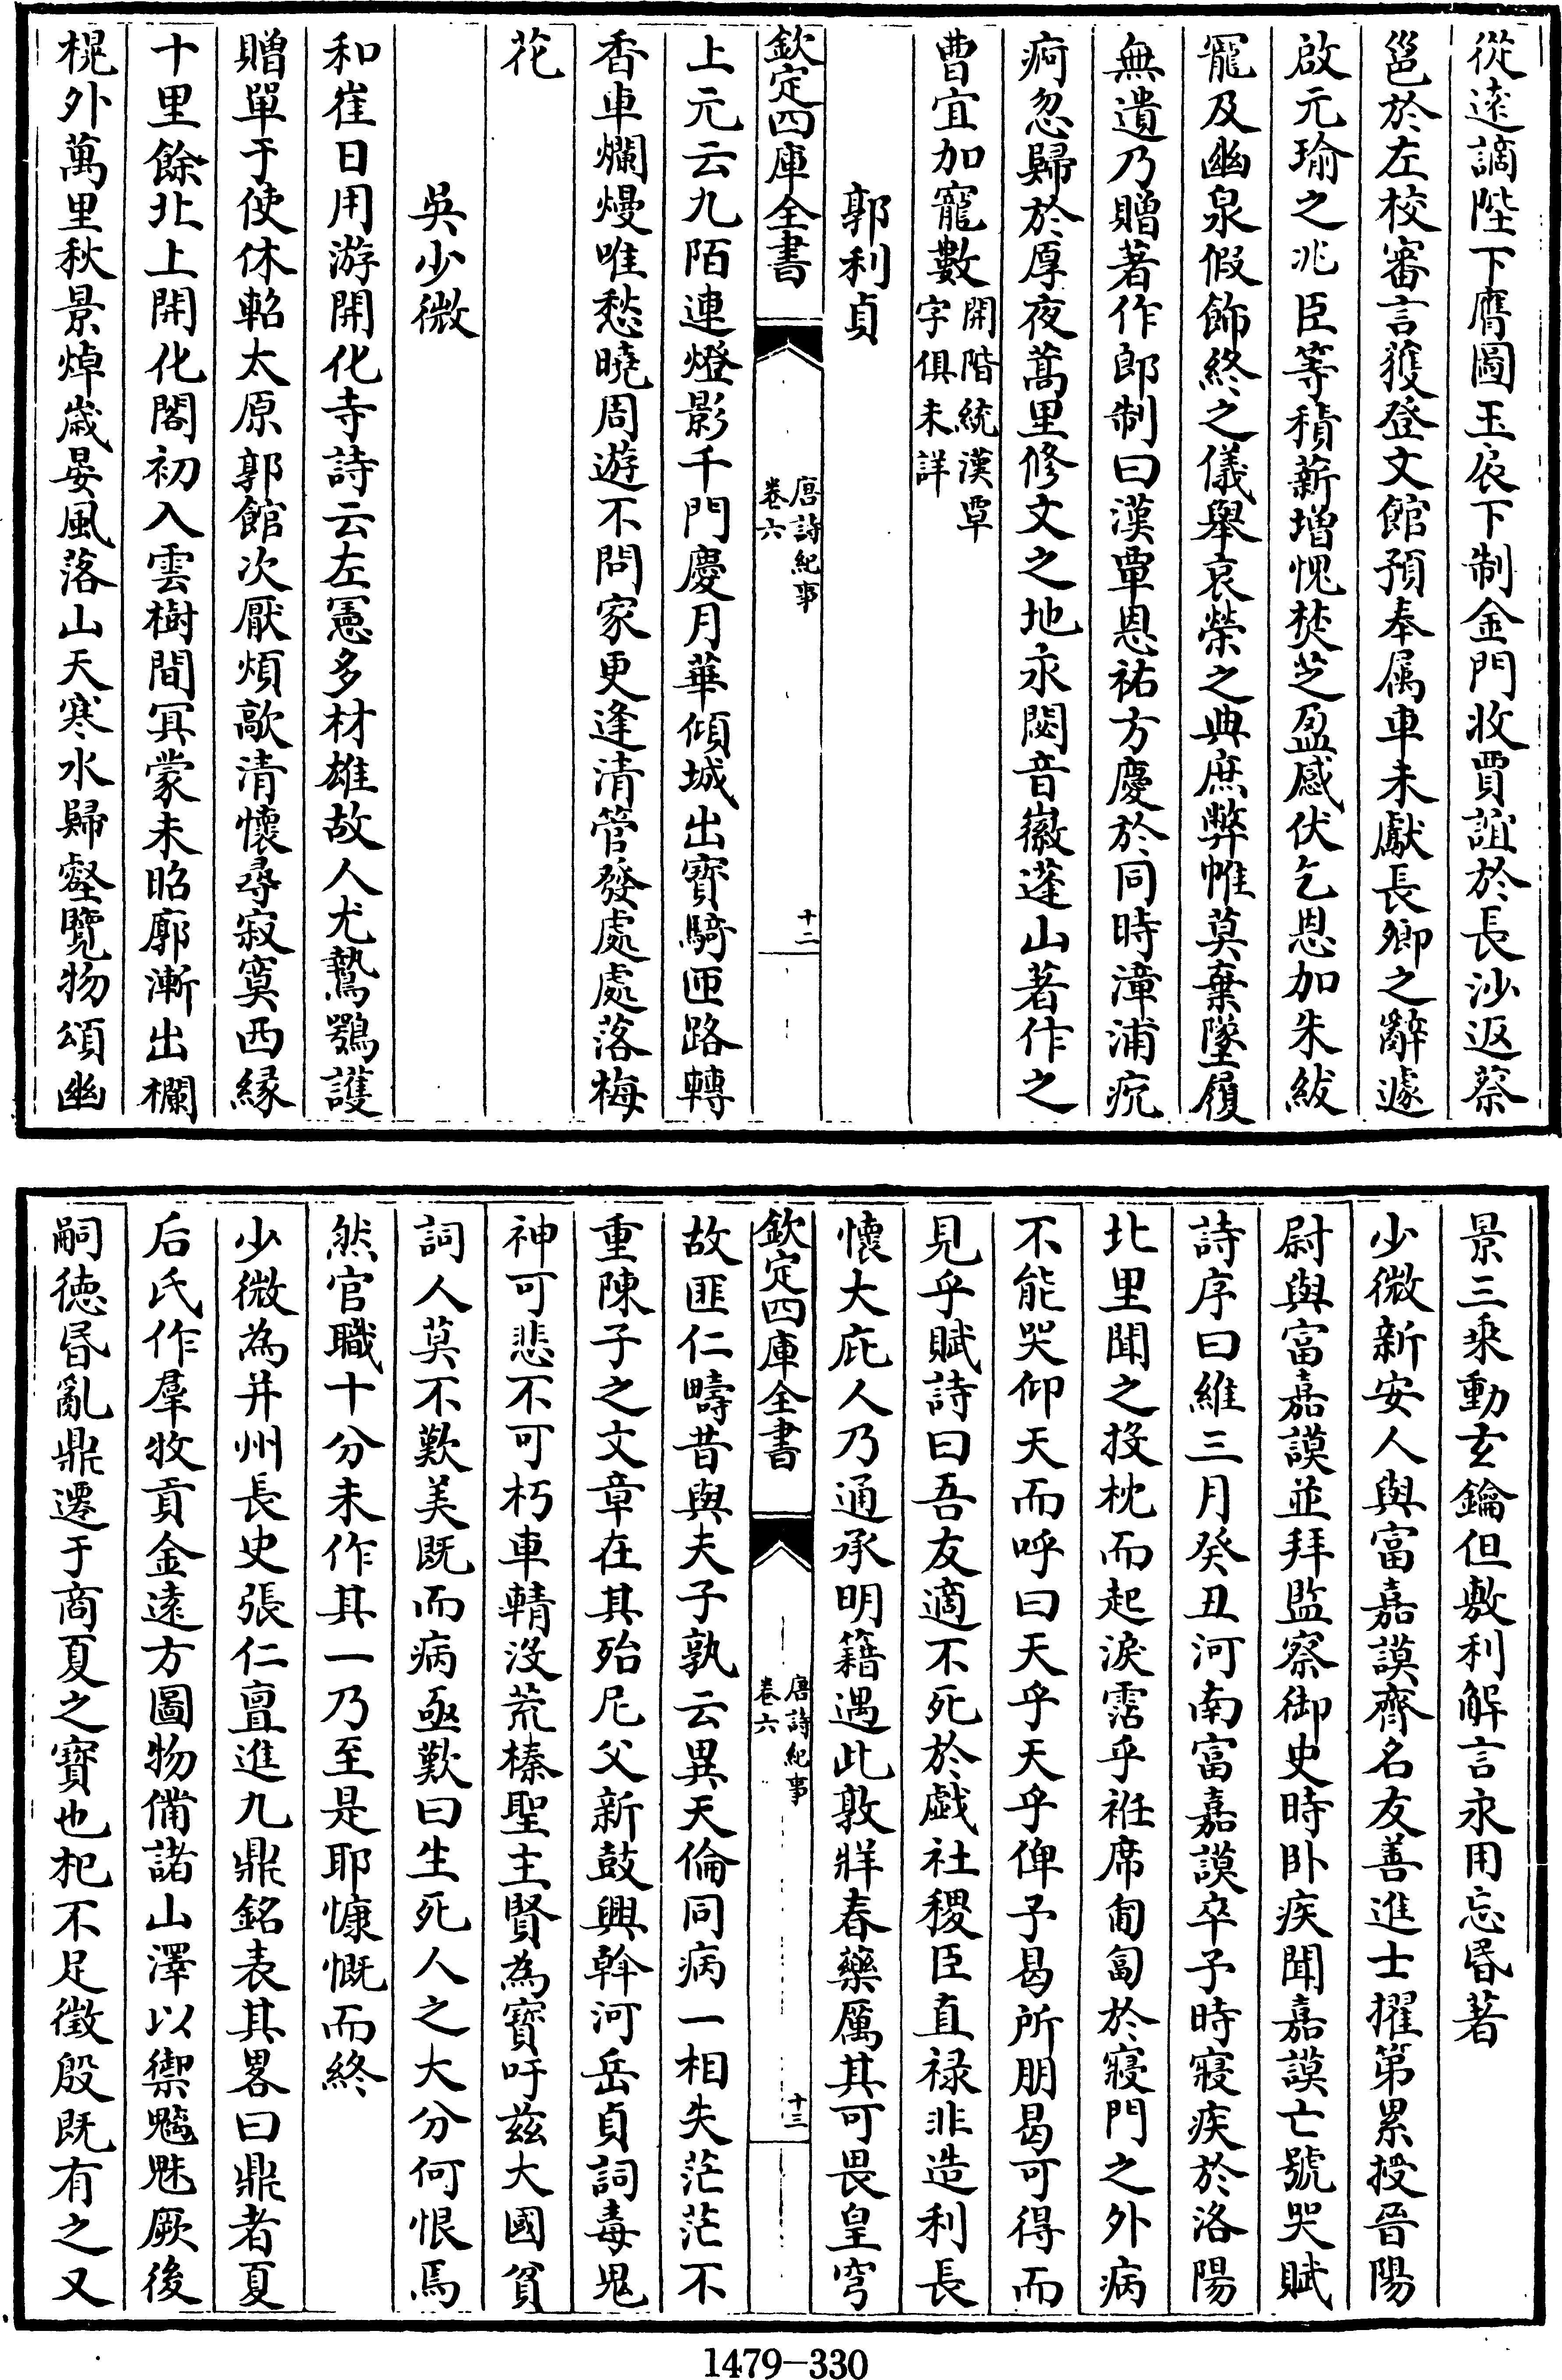 從遠謫陛下膺圖玉扆下制金門收賈誼於長沙返蔡
邕於左校審言獲登文館預奉屬車未獻長卿之辭遽
啟元瑜之兆臣等積薪增愧焚芝盈感伏乞恩加朱紱
寵及幽泉假飾終之儀舉哀榮之典庶弊帷莫棄墜履
無遺乃贈著作郎制曰漢覃恩祐方慶於同時漳浦疣
痾忽歸於厚夜蒿里修文之地永閟音徽蓬山著作之
曹宜加寵數開階統漢覃字俱未詳
郭利貞
欽定四庫全書
唐詩紀事
卷六
十二
上元云九陌連燈影千門慶月華傾城出寶騎匝路轉
香車爛熳唯愁曉周遊不問家更逢清管發處處落梅
花
吳少微
和崔日用游開化寺詩云左憲多材雄故人尤鷙鶚護
贈單于使休軺太原郭館次厭煩歊清懷尋寂寞西緣
十里餘北上開化閣初入雲樹間冥蒙未昭廓漸出欄
榥外萬里秋景焯歲晏風落山天寒水歸壑覽物頌幽
景三乘動玄鑰但敷利解言永用忘昏著
少微新安人與富嘉謨齊名友善進士擢第累授晉陽
尉與富嘉謨並拜監察御史時卧疾聞嘉謨亡號哭賦
詩序曰維三月癸丑河南富嘉謨卒予時寢疾於洛陽
北里聞之投枕而起淚霑乎袵席匍匐於寢門之外病
不能哭仰天而呼曰天乎天乎俾予曷所朋曷可得而
見乎賦詩曰吾友適不死於戲社稷臣直祿非造利長
懷大庇人乃通承明籍遘此敦牂春藥厲其可畏皇穹
欽定四庫全書
唐詩紀事
卷六
十三
故匪仁疇昔與夫子孰云異天倫同病一相失茫茫不
重陳子之文章在其殆尼父新鼓興斡河岳貞詞毒鬼
神可悲不可朽車輤沒荒榛聖主賢為寶吁茲大國貧
詞人莫不歎美既而病亟歎曰生死人之大分何恨焉
然官職十分未作其一乃至是耶慷慨而終
少微為并州長史張仁亶進九鼎銘表其畧曰鼎者夏
后氏作羣牧貢金遠方圖物備諸山澤以禦魑魅厥後
嗣德昏亂鼎遷于商夏之寶也杞不足徵殷既有之又
1479-330